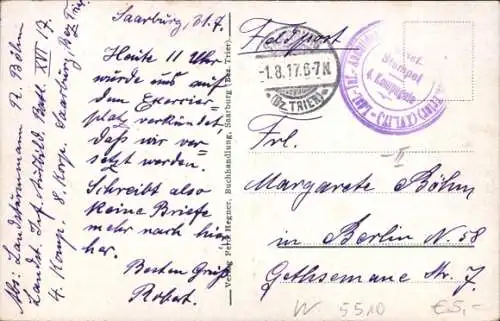 Saarburg, 31.7.
Heute 11 Uhr
wurde uns auf
dem Exerzier-
platz verkündet,
daß wir ver-
setzt werden.
Schreibt also
keine Briefe
mehr nach hier
her.
Besten Gruß
Robert.
Abs: Landsturmmann R. Böhm
Landst. Inf. Ausbild. Batl. XVII 17.
4. Komp. 8. Korp. Saarburg, Bez Trier
Verlag Hegner, Buchhandlung, Saarburg (Bez. Trier).
Feldpost
-1.8.17.6-7N
(Bz TRIER)
Stempel
4. Kompagnie
Frl.
Margarete Böhm
in Berlin N. 58
Gethsemane Str. 7.
W 5510
€5,-